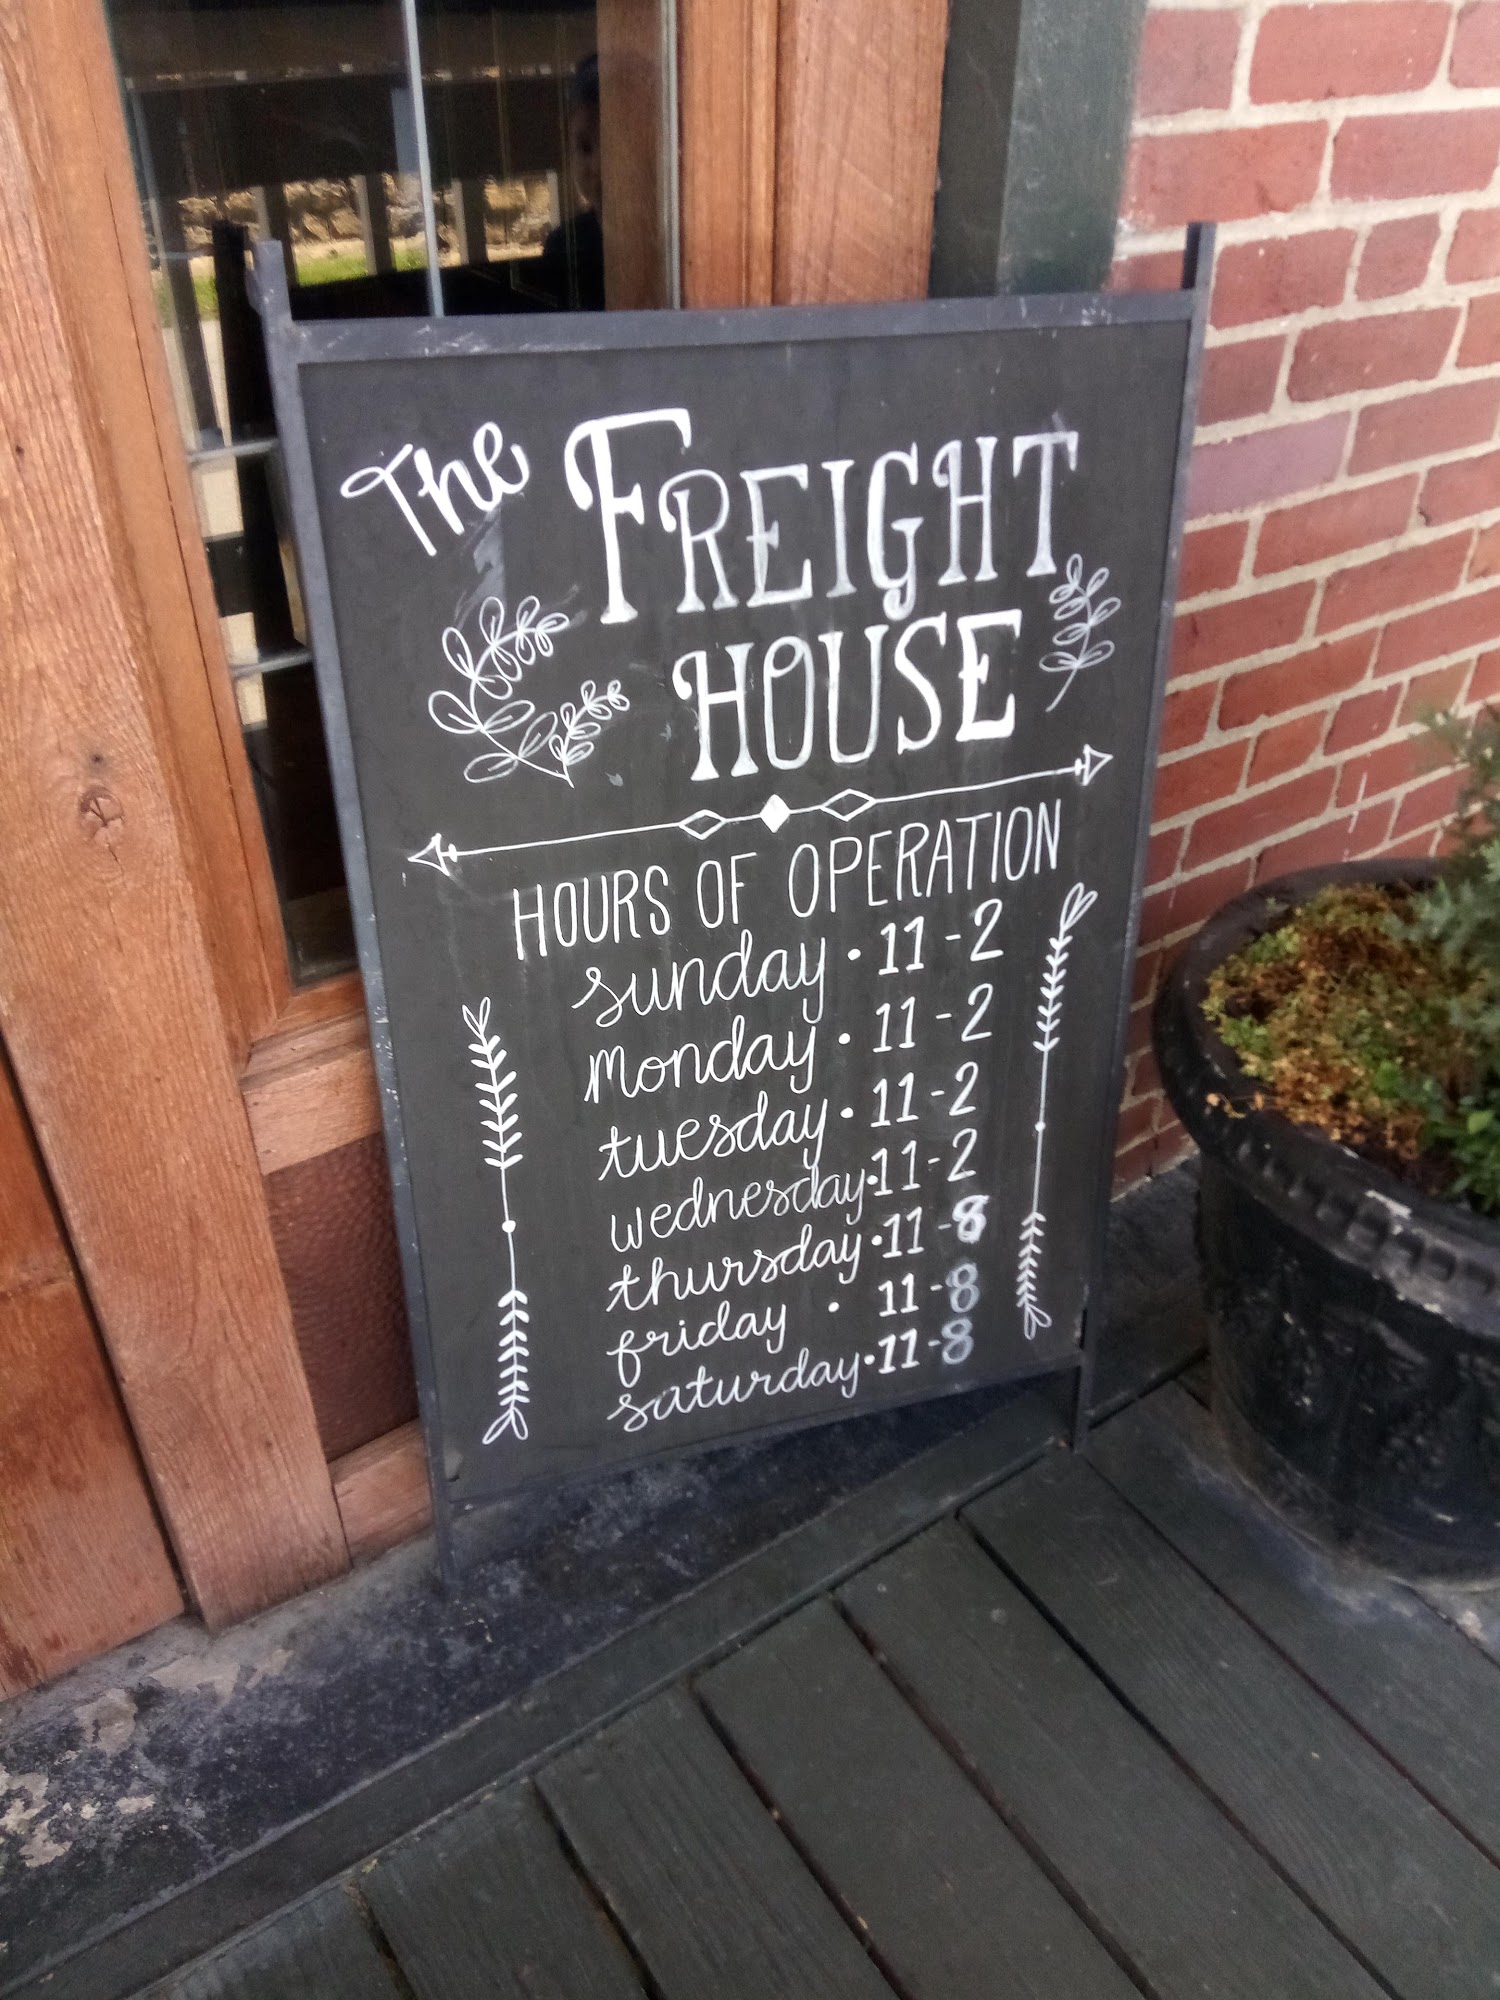 The FREIGHT
HOUSE
HOURS OF OPERATION
sunday • 11 - 2
monday • 11 - 2
tuesday • 11 - 2
wednesday • 11 - 2
thursday • 11 - 8
friday • 11 - 8
saturday • 11 - 8